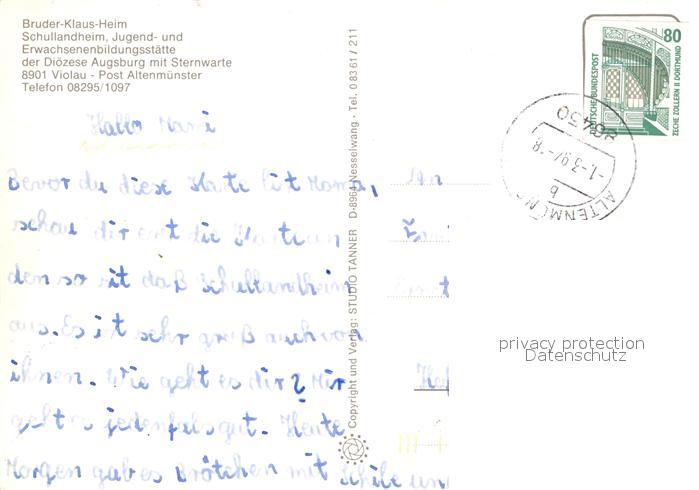 Bruder-Klaus-Heim
Schullandheim, Jugend- und
Erwachsenenbildungsstätte
der Diözese Augsburg mit Sternwarte
8901 Violau - Post Altenmünster
Telefon 08295/1097
80
DEUTSCHE BUNDESPOST
ZECHE ZOLLERN II DORTMUND
86450
-1.-3.94-18
b
ALTENMÜN
Hallo Mami
Bevor du diese Karte list Mama,
schau dir erst die
den so sit daß Schullandheim
aus. Es ist sehr groß auch von
ihnen. Wie geht es dir? Mir
geht's jedenfals gut. Heute
Morgen gab es Brötchen mit
An
Copyright und Verlag: STUDIO TANNER D-8964 Nesselwang - Tel. 0 83 61 / 211
privacy protection
Datenschutz